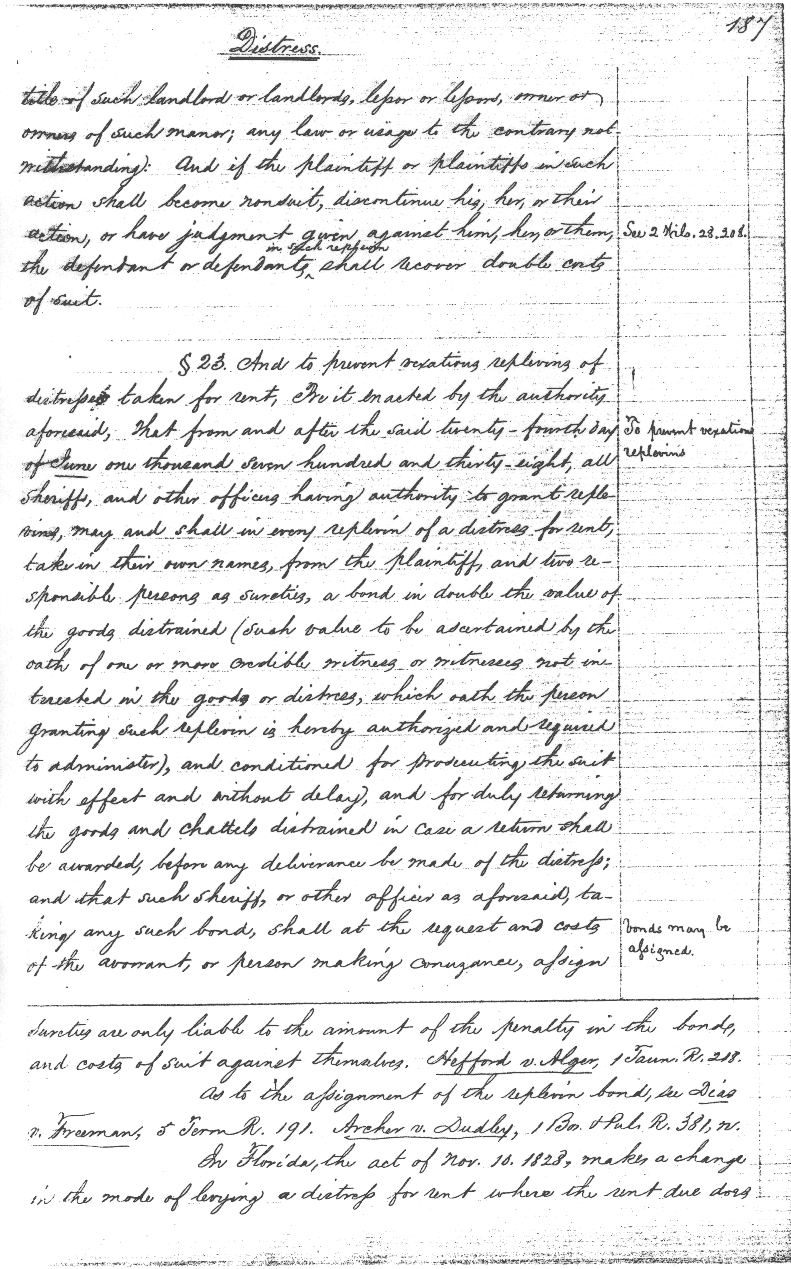 187
Distress.
title of such landlord or landlords, lessor or lessors, owner or
owners of such manor; any law or usage to the contrary not-
withstanding): And if the plaintiff or plaintiffs in such
action shall become nonsuit, discontinue his, her, or their
action, or have judgment given against him, her, or them,
See 2 Wils. 28. 208.
in such replevin
the defendant or defendants, ^ shall recover double costs
of suit.
§ 23. And to prevent vexatious replevins of
distresses taken for rent, Be it enacted by the authority
aforesaid, That from and after the said twenty-fourth day
To prevent vexatious
of June one thousand seven hundred and thirty-eight, all
replevins
sheriffs, and other officers having authority to grant reple-
vins, may and shall in every replevin of a distress for rent,
take in their own names, from the plaintiff, and two re-
sponsible persons as sureties, a bond in double the value of
the goods distrained (such value to be ascertained by the
oath of one or more credible witness or witnesses not in-
terested in the goods or distress, which oath the person
granting such replevin is hereby authorized and required
to administer), and conditioned for prosecuting the suit
with effect and without delay), and for duly returning
the goods and chattels distrained in case a return shall
be awarded, before any deliverance be made of the distress;
and that such sheriff, or other officer as aforesaid, ta-
king any such bond, shall at the request and costs
bonds may be
of the avowrant, or person making conuzance, assign
assigned.
Sureties are only liable to the amount of the penalty in the bonds,
and costs of suit against themselves. Hefford v. Alger, 1 Taun. R. 218.
As to the assignment of the replevin bond, see Dias
v. Freeman, 5 Term R. 191. Archer v. Dudley, 1 Bos. & Pul. R. 381, n.
In Florida, the act of Nov. 10. 1828, makes a change
in the mode of levying a distress for rent where the rent due does